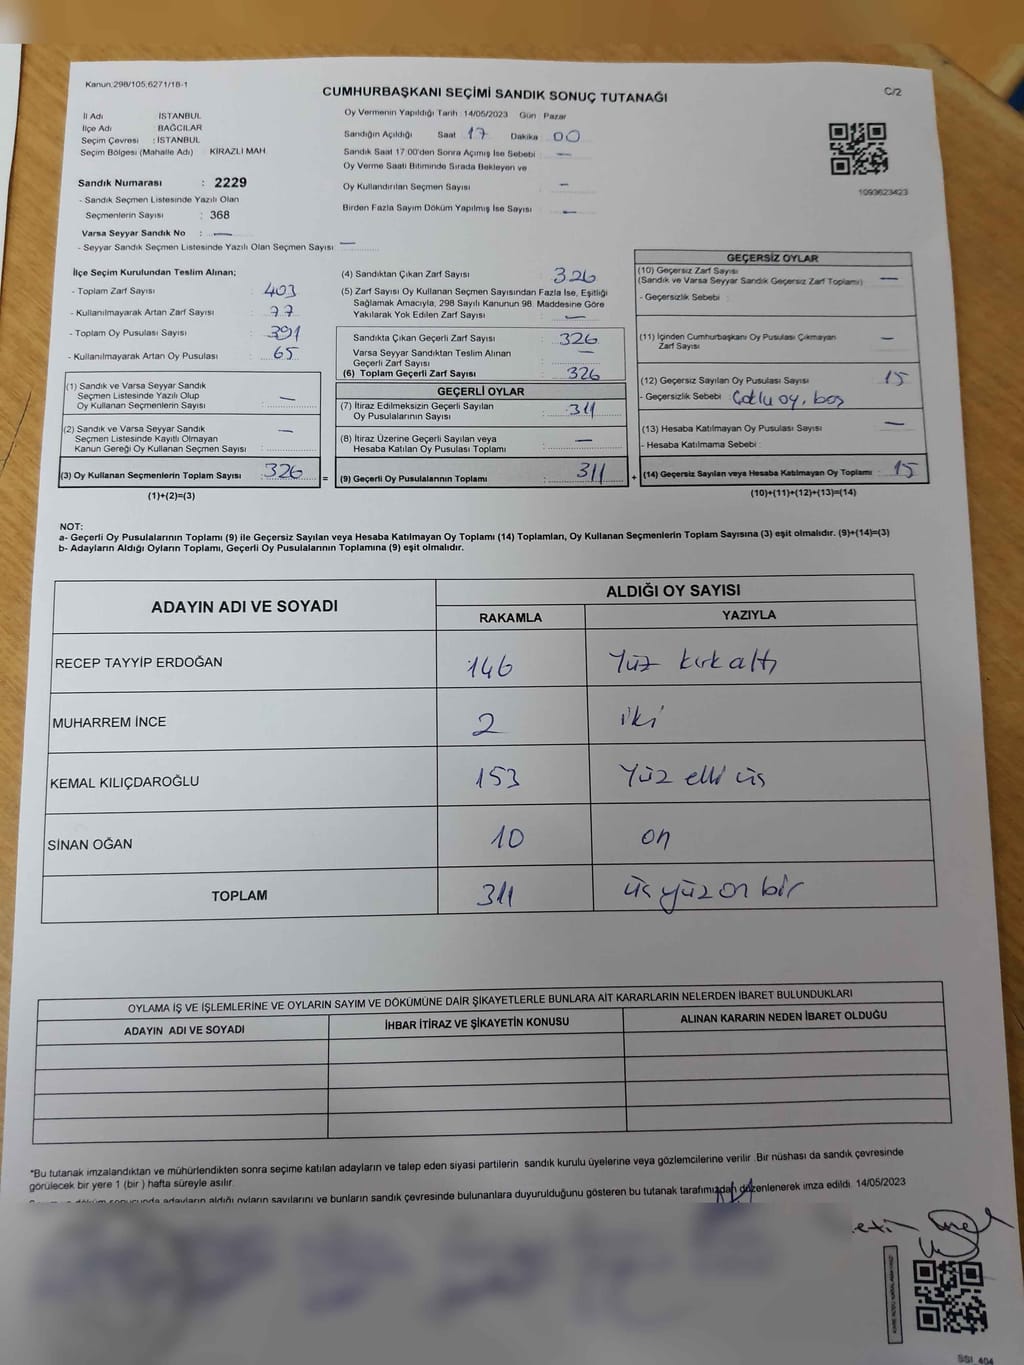 Kanun:298/105,6271/18-1
CUMHURBAŞKANI SEÇİMİ SANDIK SONUÇ TUTANAĞI
C/2
İl Adı : İSTANBUL
İlçe Adı : BAĞCILAR
Seçim Çevresi : İSTANBUL
Seçim Bölgesi (Mahalle Adı) : KİRAZLI MAH.
Sandık Numarası : 2229
- Sandık Seçmen Listesinde Yazılı Olan
Seçmenlerin Sayısı : 368
Varsa Seyyar Sandık No : —
- Seyyar Sandık Seçmen Listesinde Yazılı Olan Seçmen Sayısı —
Oy Vermenin Yapıldığı Tarih : 14/05/2023 Gün : Pazar
Sandığın Açıldığı Saat 17 Dakika 00
Sandık Saat 17:00'den Sonra Açılmış İse Sebebi : —
Oy Verme Saati Bitiminde Sırada Bekleyen ve
Oy Kullandırılan Seçmen Sayısı : —
Birden Fazla Sayım Döküm Yapılmış İse Sayısı : —
1093623423
İlçe Seçim Kurulundan Teslim Alınan;
- Toplam Zarf Sayısı : 403
- Kullanılmayarak Artan Zarf Sayısı : 77
- Toplam Oy Pusulası Sayısı : 391
- Kullanılmayarak Artan Oy Pusulası : 65
(1) Sandık ve Varsa Seyyar Sandık
Seçmen Listesinde Yazılı Olup
Oy Kullanan Seçmenlerin Sayısı : —
(2) Sandık ve Varsa Seyyar Sandık
Seçmen Listesinde Kayıtlı Olmayan
Kanun Gereği Oy Kullanan Seçmen Sayısı : —
(3) Oy Kullanan Seçmenlerin Toplam Sayısı : 326
(1)+(2)=(3)
(4) Sandıktan Çıkan Zarf Sayısı : 326
(5) Zarf Sayısı Oy Kullanan Seçmen Sayısından Fazla İse, Eşitliği
Sağlamak Amacıyla, 298 Sayılı Kanunun 98. Maddesine Göre
Yakılarak Yok Edilen Zarf Sayısı : —
Sandıkta Çıkan Geçerli Zarf Sayısı : 326
Varsa Seyyar Sandıktan Teslim Alınan
Geçerli Zarf Sayısı : —
(6) Toplam Geçerli Zarf Sayısı : 326
GEÇERLİ OYLAR
(7) İtiraz Edilmeksizin Geçerli Sayılan
Oy Pusulalarının Sayısı : 311
(8) İtiraz Üzerine Geçerli Sayılan veya
Hesaba Katılan Oy Pusulası Toplamı : —
= (9) Geçerli Oy Pusulalarının Toplamı : 311
GEÇERSİZ OYLAR
(10) Geçersiz Zarf Sayısı
(Sandık ve Varsa Seyyar Sandık Geçersiz Zarf Toplamı) : —
- Geçersizlik Sebebi :
(11) İçinden Cumhurbaşkanı Oy Pusulası Çıkmayan
Zarf Sayısı : —
(12) Geçersiz Sayılan Oy Pusulası Sayısı : 15
- Geçersizlik Sebebi : Çoklu oy, boş
(13) Hesaba Katılmayan Oy Pusulası Sayısı : —
- Hesaba Katılmama Sebebi :
+ (14) Geçersiz Sayılan veya Hesaba Katılmayan Oy Toplamı : 15
(10)+(11)+(12)+(13)=(14)
NOT:
a- Geçerli Oy Pusulalarının Toplamı (9) ile Geçersiz Sayılan veya Hesaba Katılmayan Oy Toplamı (14) Toplamları, Oy Kullanan Seçmenlerin Toplam Sayısına (3) eşit olmalıdır. (9)+(14)=(3)
b- Adayların Aldığı Oyların Toplamı, Geçerli Oy Pusulalarının Toplamına (9) eşit olmalıdır.
ADAYIN ADI VE SOYADI
ALDIĞI OY SAYISI
RAKAMLA YAZIYLA
RECEP TAYYİP ERDOĞAN 146 Yüz kırk altı
MUHARREM İNCE 2 iki
KEMAL KILIÇDAROĞLU 153 Yüz elli üç
SİNAN OĞAN 10 on
TOPLAM 311 üç yüz on bir
OYLAMA İŞ VE İŞLEMLERİNE VE OYLARIN SAYIM VE DÖKÜMÜNE DAİR ŞİKAYETLERLE BUNLARA AİT KARARLARIN NELERDEN İBARET BULUNDUKLARI
ADAYIN ADI VE SOYADI İHBAR İTİRAZ VE ŞİKAYETİN KONUSU ALINAN KARARIN NEDEN İBARET OLDUĞU
*Bu tutanak imzalandıktan ve mühürlendikten sonra seçime katılan adayların ve talep eden siyasi partilerin sandık kurulu üyelerine veya gözlemcilerine verilir. Bir nüshası da sandık çevresinde
görülecek bir yere 1 (bir) hafta süreyle asılır.
döküm sonucunda adayların aldığı oyların sayılarını ve bunların sandık çevresinde bulunanlara duyurulduğunu gösteren bu tutanak tarafımızdan düzenlenerek imza edildi. 14/05/2023
SSI_404